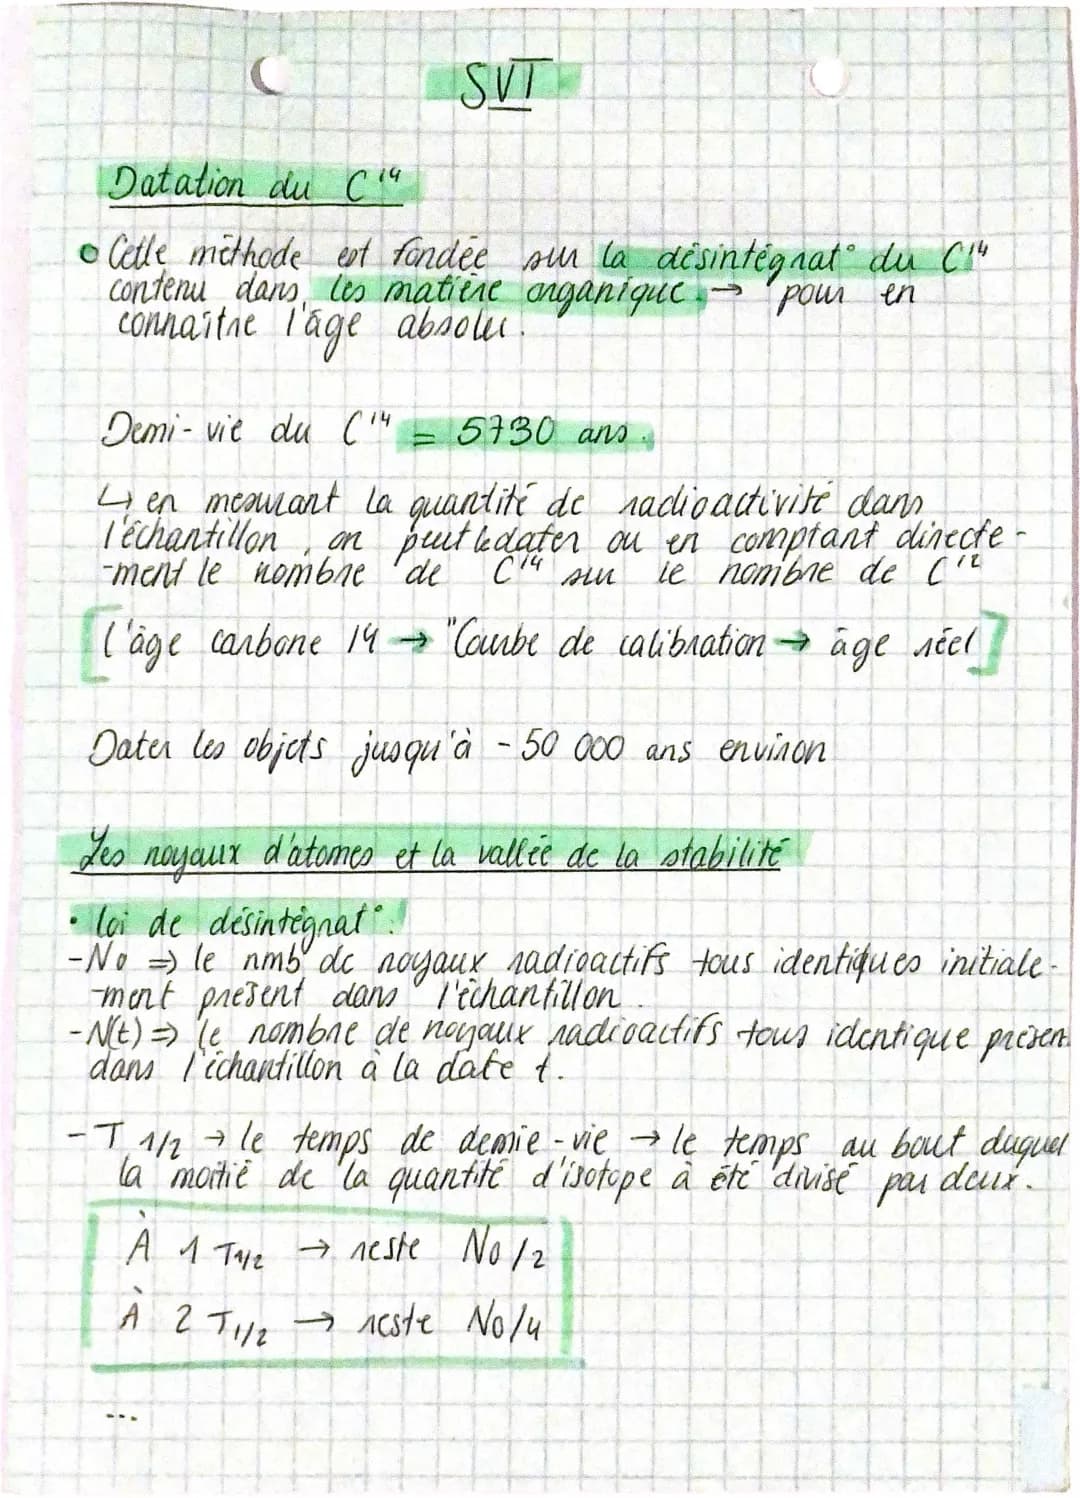 SVT
Datation du C¹⁴
Cette méthode est fondée sur la désintégrat° du C¹⁴
contenu dans les matière organique. → pour en
connaître l'âge absolu.
Demi-vie du C¹⁴ = 5730 ans.
↳ en mesurant la quantité de radioactivité dans
l'échantillon, on peut le dater ou en comptant directe-
-ment le nombre de C¹⁴ sur le nombre de C¹²
[l'âge carbone 14 → "Courbe de calibration → âge réel]
Dater les objets jusqu'à - 50 000 ans environ
Les noyaux d'atomes et la vallée de la stabilité
• loi de désintégrat°:
- N₀ ⇒ le nmb de noyaux radioactifs tous identiques initiale-
-ment présent dans l'échantillon.
- N(t) ⇒ le nombre de noyaux radioactifs tous identique présent
dans l'échantillon à la date t.
- T 1/2 → le temps de demie-vie → le temps au bout duquel
la moitié de la quantité d'isotope à été divisé par deux.
À 1 T1/2 → reste N₀/2
À 2 T1/2 → reste N₀/4
...